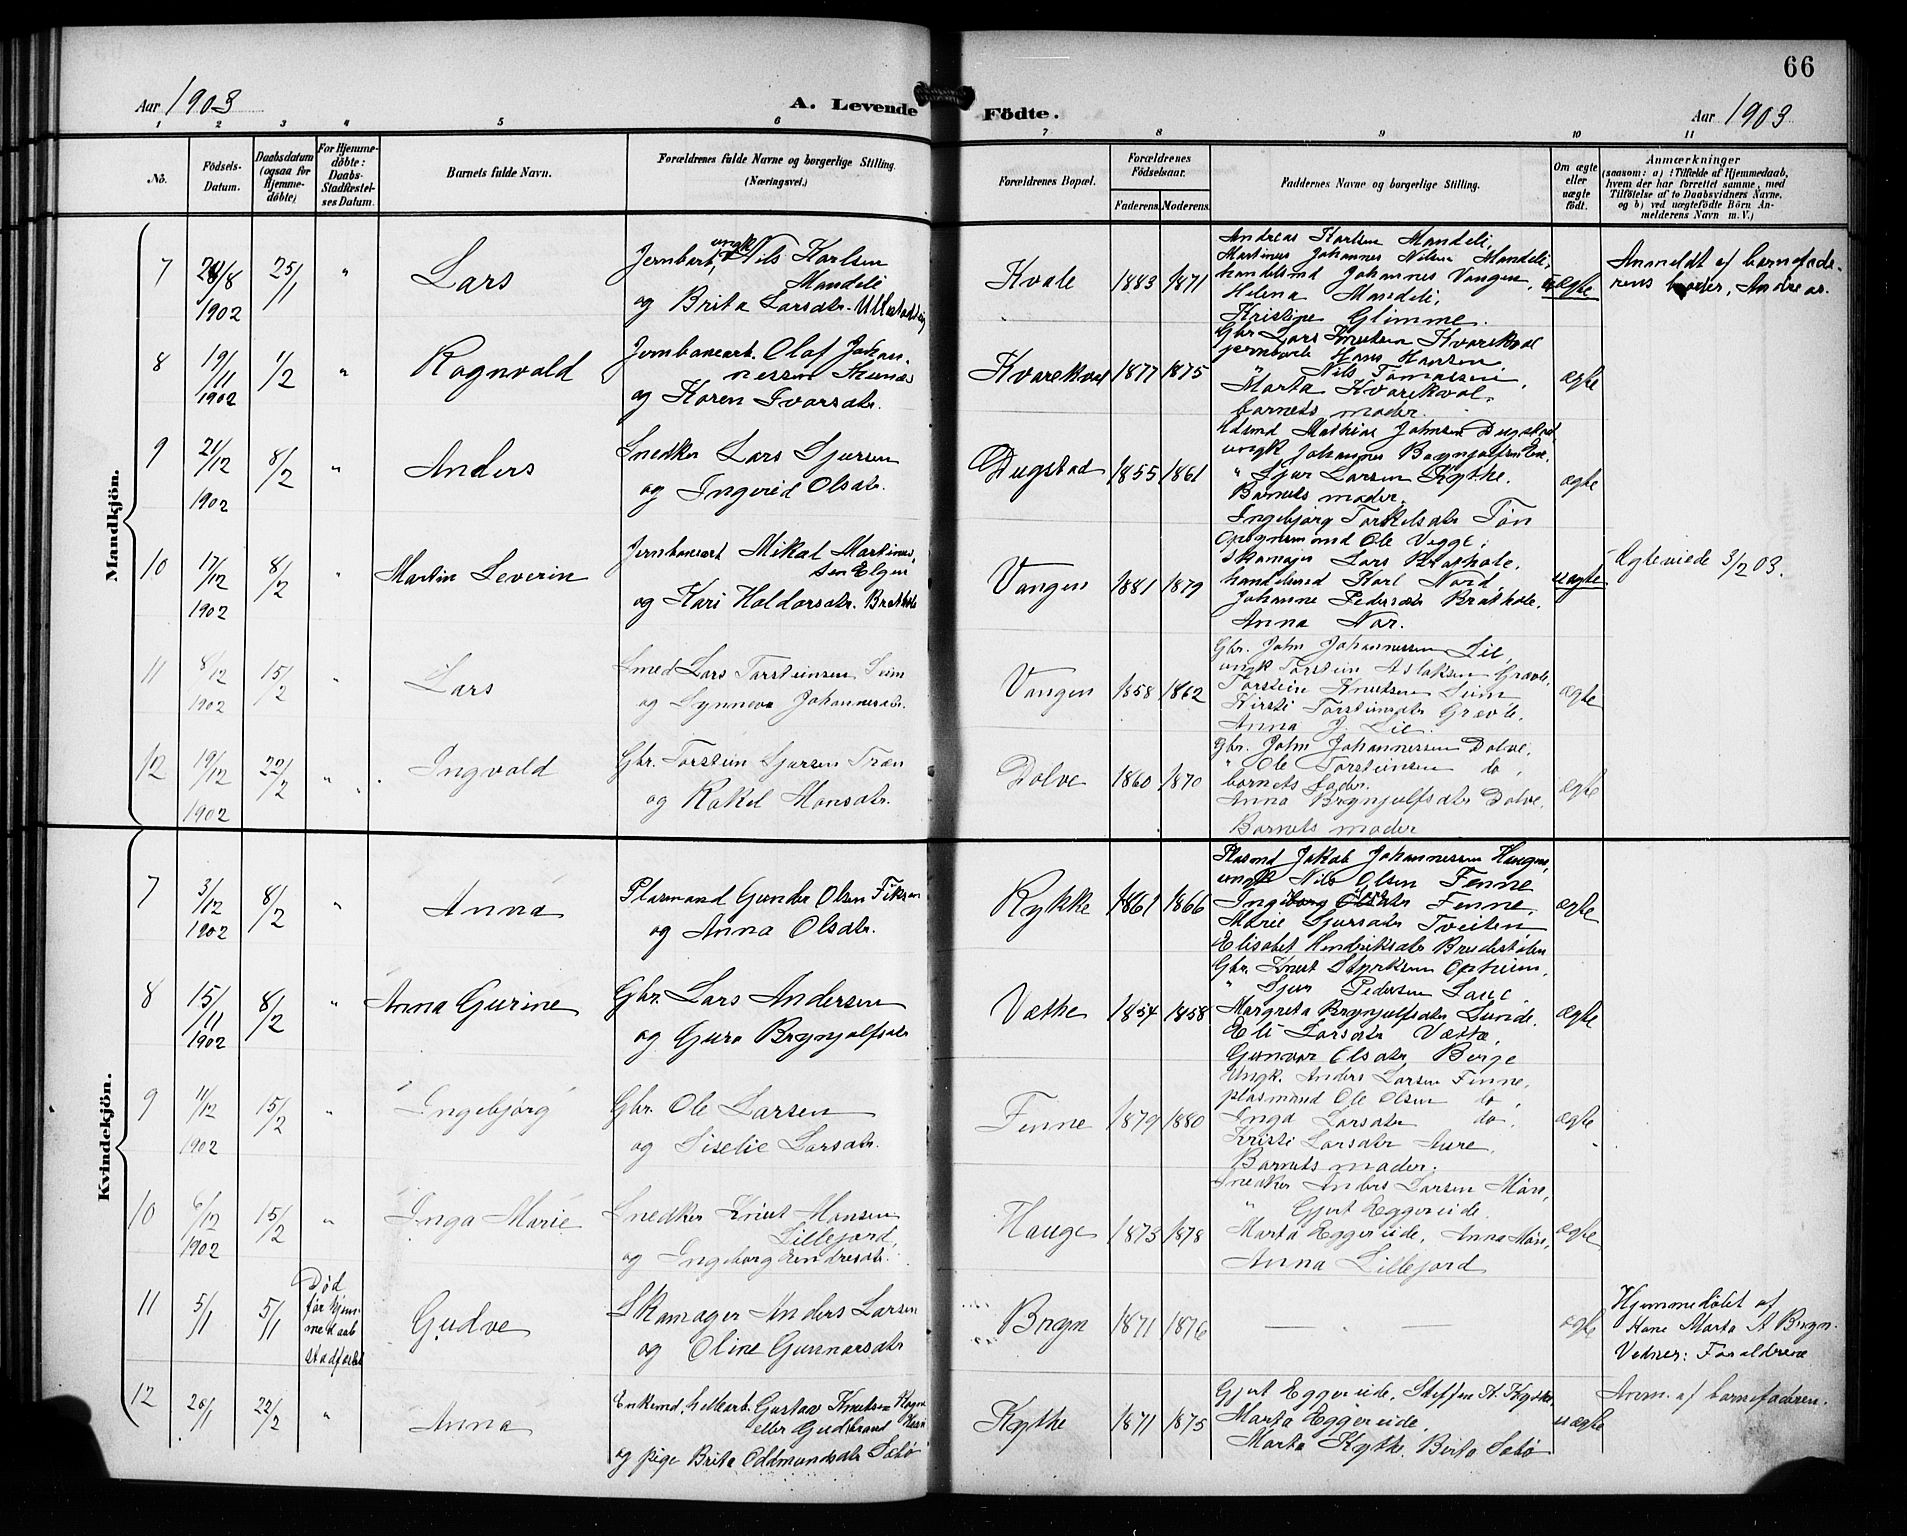 66
Aar 1903
A. Levende
Födte.
Aar 1903
1 2 3 4 5 6 7 8 9 10 11
No.
Födsels-
Datum.
Daabsdatum
(ogsaa for
Hjemme-
döbte)
For Hjemme-
döbte:
Daabs-
Stadfæstel-
ses Datum.
Barnets fulde Navn.
Forældrenes fulde Navne og borgerlige Stilling.
(Næringsvei.)
Forældrenes Bopæl.
Forældrenes
Födselsaar.
Faderens.
Moderens.
Faddernes Navne og borgerlige Stilling.
Om ægte
eller
uægte
födt.
Anmærkninger
(saasom: a) i Tilfælde af Hjemmedaab,
hvem der har forrettet samme, med
Tilföielse af to Daabsvidners Navne,
og b) ved uægtefödte Börn An-
melderens Navn m. V.)
Mandkjön.
7
28/8
1902
25/1
"
Lars
Jernbart, ungk Nils Karlsen
Mandeli
og Brita Larsdtr.
Kvale
1883
1871
Andreas Karlsen Mandeli,
Martinus Johannes Nilsen Mandeli,
handelsmd Johannes Vangen,
Helena Mandeli,
Kristine Glimme.
uægte
Anmeldt af barnefade-
rens broder, Andreas.
8
19/11
1902
1/2
"
Ragnvald
Jernbanearb. Olaf Johan-
nessen
og Karen Ivarsdtr.
Kvarekval
1877
1875
Gbr. Lars Knutsen Kvarekval
jernbarb Hans Hansen
" Nils Tomassen,
Marta Kvarekval,
barnets moder.
ægte
9
21/12
1902
8/2
"
Anders
Snedker Lars Sjursen
og Ingerid Olsdtr.
Dugstad
1855
1861
Mathias Johnsen Dugstad
ungk Johannes Brynjulfsen
" Sjur Larsen Kythe.
Barnets moder.
Ingebjørg Torkelsdtr Tøn
ægte
10
17/12
1902
8/2
"
Martin Severin
Jernbanearb Mikal Martinus-
sen Elgen
og Kari Haldorsdtr. Brathole
Vangen
1881
1879
Ole Vegge,
Skomager Lars Brathole,
handelsmd Karl Nord
Johanne Pedersdtr Brathole,
Anna Nor.
uægte
Ægteviede 3/2 03.
11
8/12
1902
15/2
"
Lars
Smed Lars Torsteinsen Seim
og Synneva Johannesdtr.
Vangen
1858
1862
Gbr. John Johannessen Lie,
ungk Torstein Aslaksen Grove,
Torstein Knutsen Seim
Kirsti Torsteinsdtr Grove,
Anna J. Lie.
ægte
12
19/12
1902
22/2
"
Ingvald
Gbr. Torstein Sjursen Træn
og Rakel Monsdtr.
Dolve
1860
1870
Gbr. John Johannessen Dolve,
" Ole Torsteinsen do,
barnets fader.
Anna Brynjulfsdtr Dolve,
Barnets moder
ægte
Kvindekjön.
7
3/12
1902
8/2
"
Anna
Plasmand Gunder Olsen
og Anna Olsdtr.
Rykke
1861
1866
Plasmd Jakob Johannessen Haugen,
ungk Nils Olsen Fenne
Fenne,
Marie Sjursdtr Tveiten
Elisabet Hendriksdtr
ægte
8
15/11
1902
8/2
"
Anna Gurine
Gbr. Lars Andersen
og Guro Brynjulfsdtr
Væthe
1854
1858
Gbr. Knut Styrksen Opheim,
" Sjur Pedersen
Margreta Brynjulfsdtr Lunde.
Eli Larsdtr Væthe,
Gunvor Olsdtr Berge
ægte
9
11/12
1902
15/2
"
Ingebjørg
Gbr. Ole Larsen
og Siselie Larsdtr.
Fenne
1879
1880
Ungk. Anders Larsen Finne,
plasmand Ole Olsen do,
Inga Larsdtr do,
Kristi Larsdtr
Barnets moder.
ægte
10
6/12
1902
15/2
"
Inga Marie
Snedker Knut Hansen
Lillejord,
og Ingeborg Endresdtr.
Hauge
1873
1878
Snedker Anders Larsen Møn,
" Gjert Eggereide.
Marta Eggereide, Anna Møn,
Anna Lillejord
ægte
11
5/1
5/1
Død
før hjem-
medaab
stadfæstet
Gudve
Skomager Anders Larsen
og Oline Gunnarsdtr
Bryn
1871
1876
— . —
ægte
Hjemmedøbt af
Kone Marta A Bryn.
Vidner: Forældrene
12
20/1
22/2
"
Anna
Enkemd, Gustav Knutsen
eller Gudbrand
og pige Brita Oddmundsdtr Sæbø
Kythe
1871
1875
Gjert Eggereide, Steffen A. Kythe,
Marta Eggereide,
Marta Kythe. Brita Sæbø
uægte
Anm. af barnefaderen.